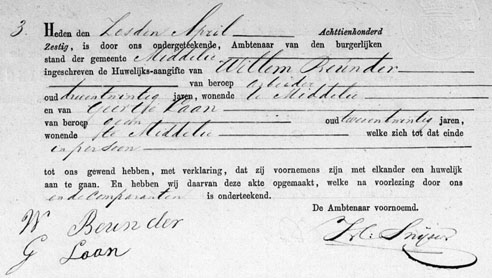 3. Heden den Zesden April Achttienhonderd
Zestig, is door ons ondergeteekende, Ambtenaar van den burgerlijken
stand der gemeente Middelie
ingeschreven de Huwelijks-aangifte van Willem Beunder
van beroep arbeider
oud drieentwintig jaren, wonende te Middelie
en van Geertje Laan
van beroep geen oud tweeentwintig jaren,
wonende te Middelie welke zich tot dat einde
in persoon
tot ons gewend hebben, met verklaring, dat zij voornemens zijn met elkander een huwelijk
aan te gaan. En hebben wij daarvan deze akte opgemaakt, welke na voorlezing door ons
en de Comparanten is onderteekend.
De Ambtenaar voornoemd.
W Beunder
G Laan